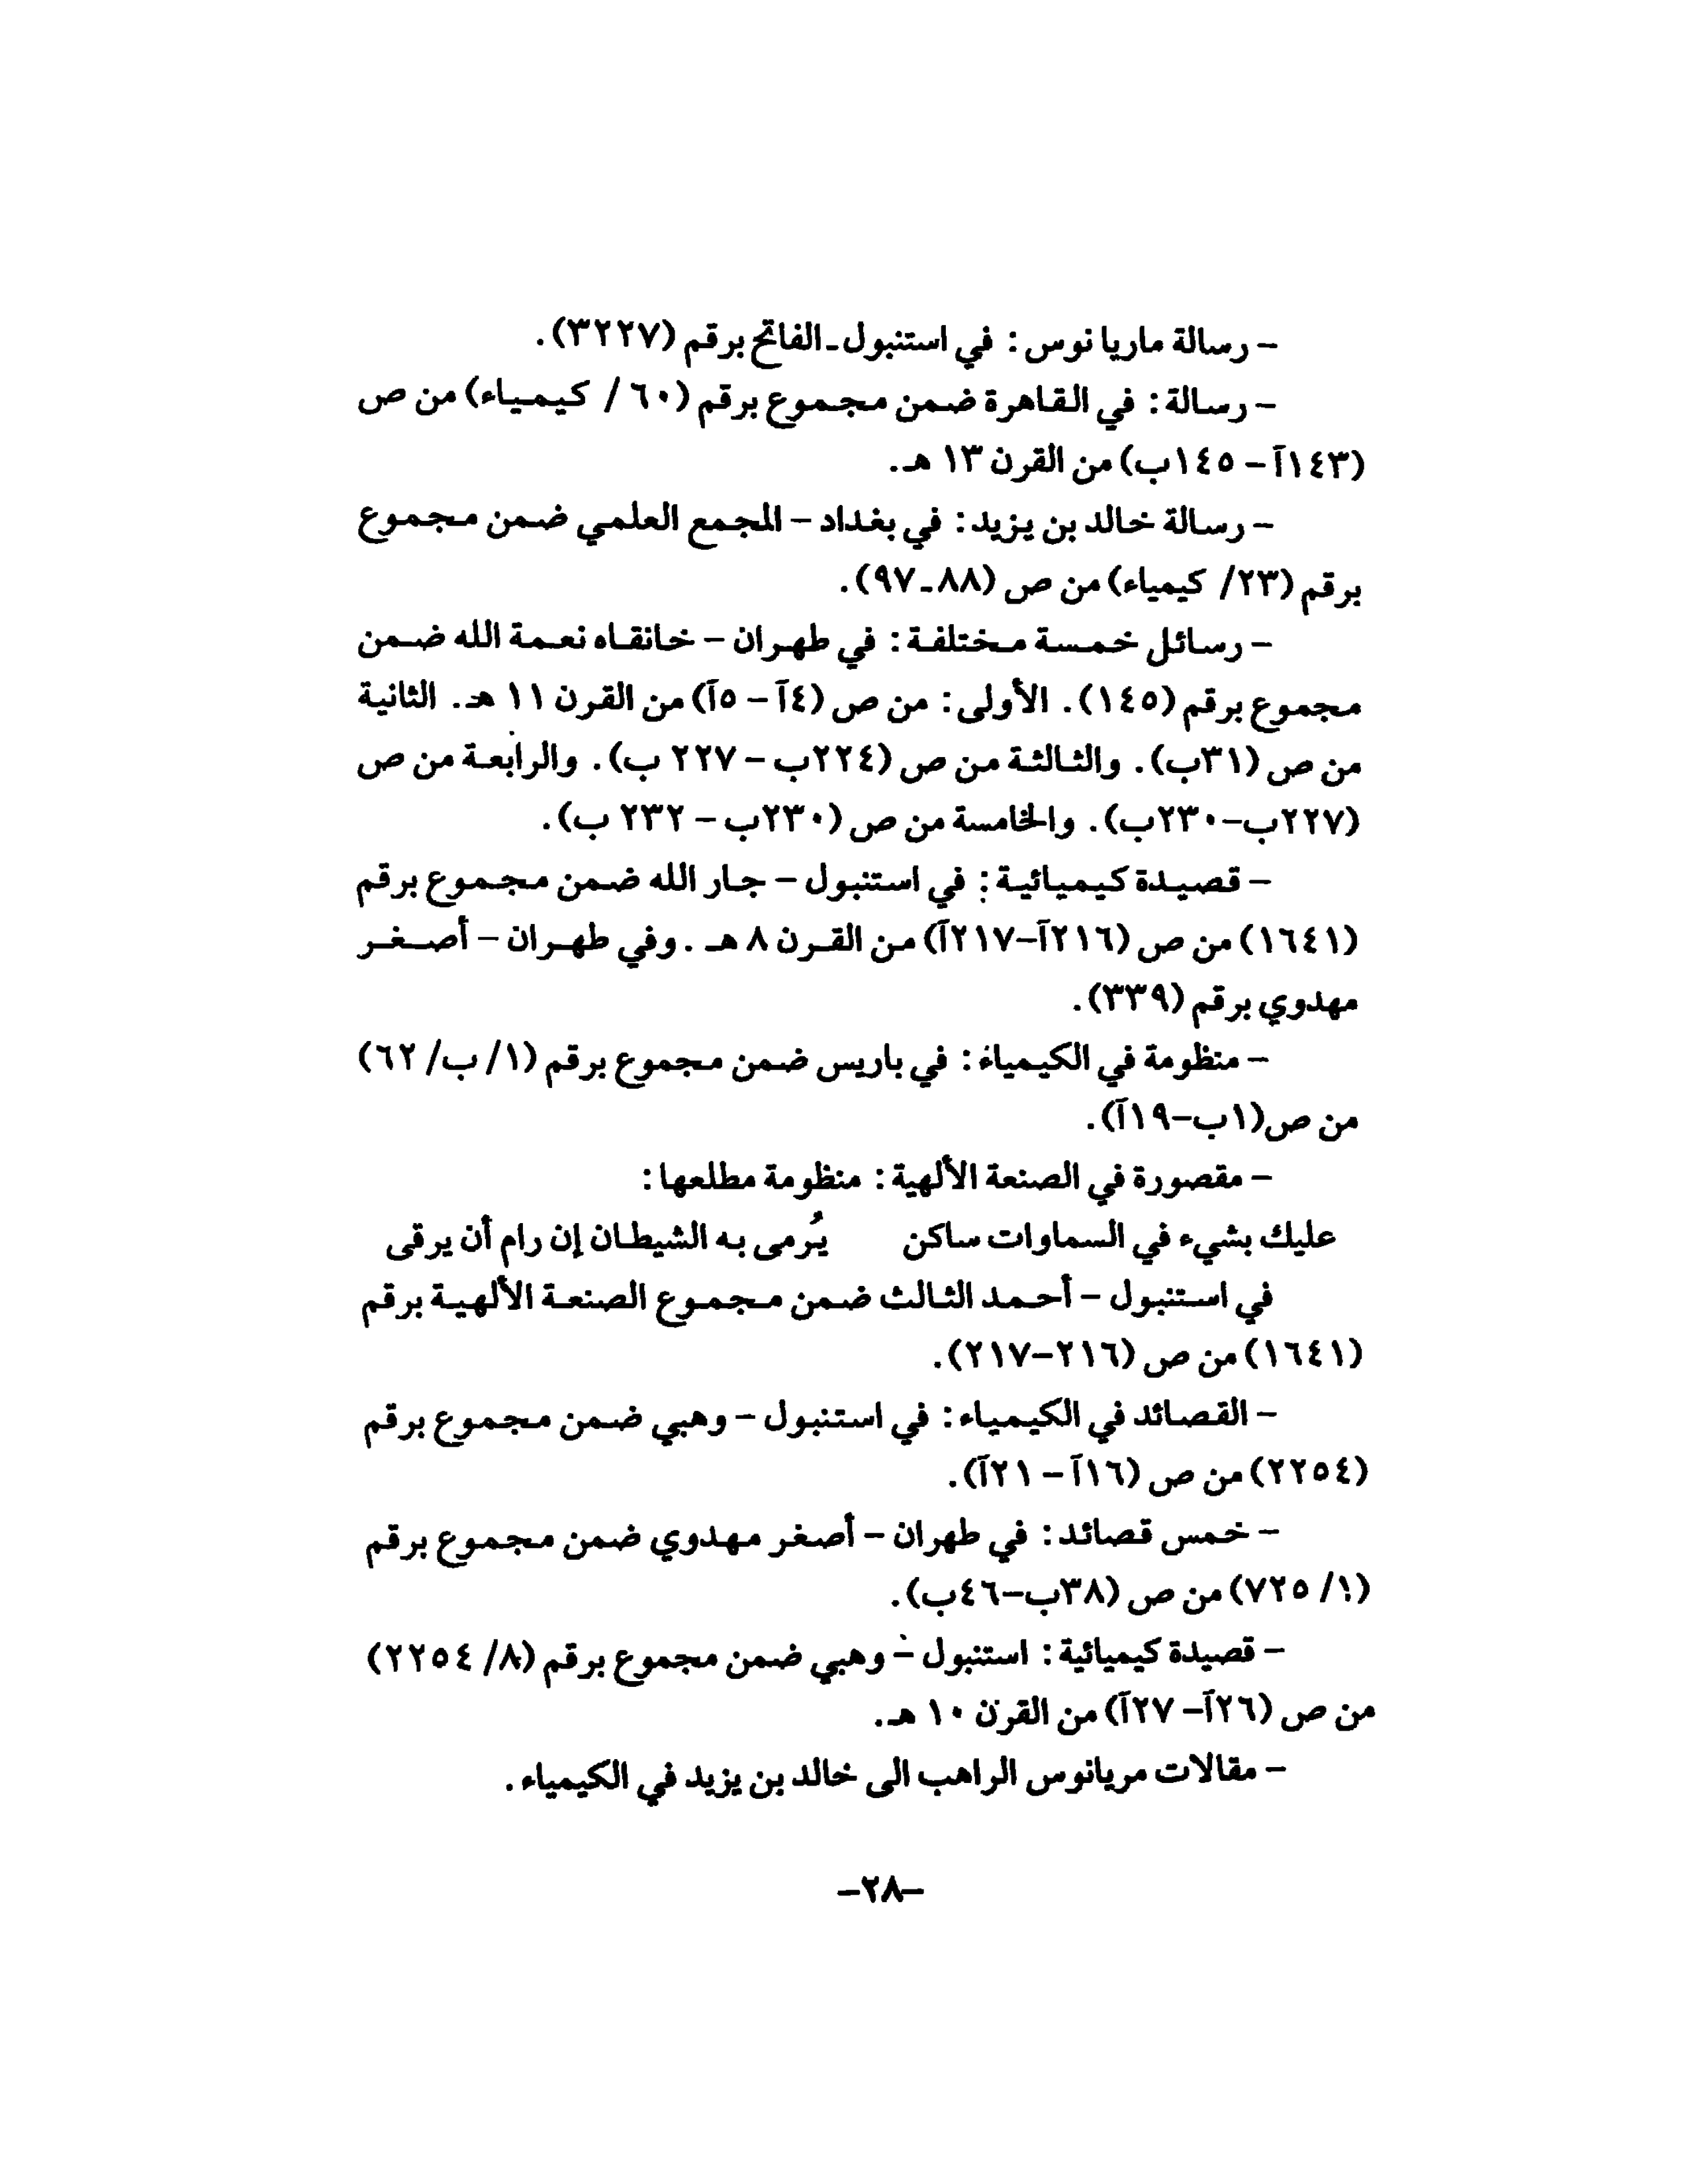 - رسالة ماريا نوس: في استنبول ـ الفاتح برقم (٣٢٢٧).
- رسالة: في القاهرة ضمن مجموع برقم (٦٠/ كيمياء) من ص
(١٤٣آ - ١٤٥ب) من القرن ١٣ هـ.
- رسالة خالد بن يزيد: في بغداد - المجمع العلمي ضمن مجموع
برقم (٢٣/ كيمياء) من ص (٨٨ـ٩٧).
- رسائل خمسة مختلفة: في طهران - خانقاه نعمة الله ضمن
مجموع برقم (١٤٥). الأولى: من ص (٤آ - ٥آ) من القرن ١١ هـ. الثانية
من ص (٣١ب). والثالثة من ص (٢٢٤ب - ٢٢٧ ب). والرابعة من ص
(٢٢٧ب-٢٣٠ب). والخامسة من ص (٢٣٠ب - ٢٣٢ ب).
- قصيدة كيميائية: في استنبول - جار الله ضمن مجموع برقم
(١٦٤١) من ص (٢١٦آ-٢١٧آ) من القرن ٨ هـ. وفي طهران - أصغر
مهدوي برقم (٣٣٩).
- منظومة في الكيمياء: في باريس ضمن مجموع برقم (١/ ب/ ٦٢)
من ص(١ب-١٩آ).
- مقصورة في الصنعة الألهية: منظومة مطلعها:
عليك بشيء في السماوات ساكن يُرمى به الشيطان إن رام أن يرقى
في استنبول - أحمد الثالث ضمن مجموع الصنعة الألهية برقم
(١٦٤١) من ص (٢١٦-٢١٧).
- القصائد في الكيمياء: في استنبول - وهبي ضمن مجموع برقم
(٢٢٥٤) من ص (١٦آ - ٢١آ).
- خمس قصائد: في طهران - أصغر مهدوي ضمن مجموع برقم
(١/ ٧٢٥) من ص (٣٨ب-٤٦ب).
- قصيدة كيميائية: استنبول - وهبي ضمن مجموع برقم (٨/ ٢٢٥٤)
من ص (٢٦آ- ٢٧آ) من القرن ١٠ هـ.
- مقالات مريانوس الراهب الى خالد بن يزيد في الكيمياء.
-٢٨-